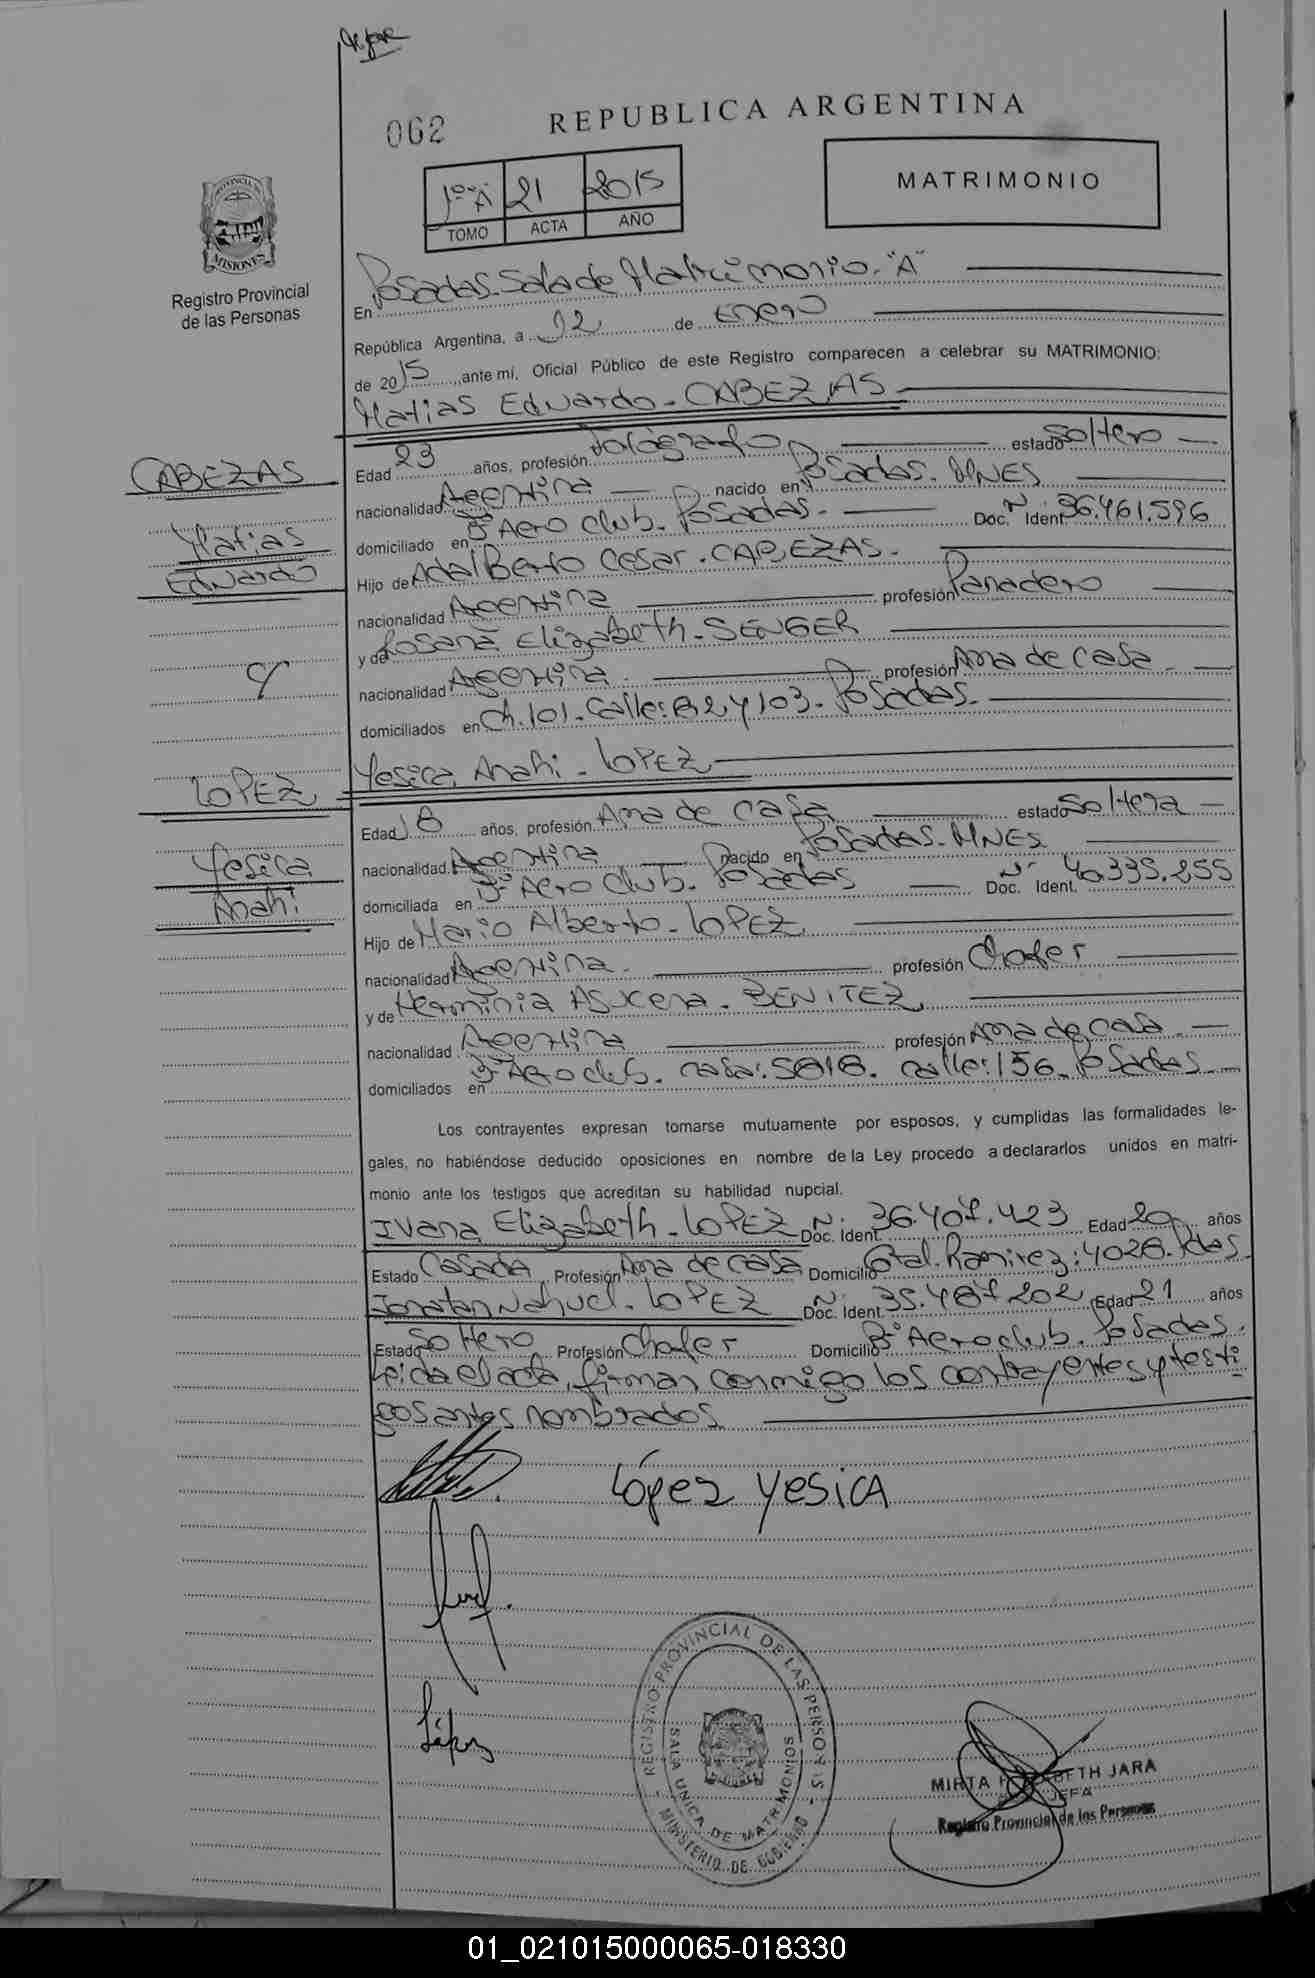 062
REPUBLICA ARGENTINA
MATRIMONIO
1º "A" 21 2015
TOMO ACTA AÑO
PROVINCIA DE MISIONES
Registro Provincial
de las Personas
En Posadas. Sala de Matrimonio. "A"
República Argentina, a 02 de Enero
de 2015, ante mí, Oficial Público de este Registro comparecen a celebrar su MATRIMONIO:
Matias Eduardo - CABEZAS
CABEZAS
Matias
Eduardo
y
LOPEZ
Yesica
Anahi
Edad 23 años, profesión Fotógrafo estado Soltero
nacionalidad Argentina nacido en Posadas. MNES
domiciliado en Bº Aero club. Posadas. Doc. Ident. Nº: 36.461.596
Hijo de Adalberto Cesar. CABEZAS.
nacionalidad Argentina profesión Panadero
y de Rosana Elizabeth. SENGER
nacionalidad Argentina. profesión Ama de casa
domiciliados en Ch. 101. Calle: B2 y 103. Posadas.
Yesica Anahi - LOPEZ
Edad 18 años, profesión Ama de casa estado Soltera
nacionalidad Argentina nacido en Posadas. MNES
domiciliada en Bº Aero club. Posadas Doc. Ident. Nº 40.335.255
Hijo de Mario Alberto - LOPEZ
nacionalidad Argentina. profesión Chofer
y de Herminia Asucena. BENITEZ
nacionalidad Argentina profesión Ama de casa.
domiciliados en Bº Aeroclub. casa: 5818. calle: 156. Posadas
Los contrayentes expresan tomarse mutuamente por esposos, y cumplidas las formalidades le-
gales, no habiéndose deducido oposiciones en nombre de la Ley procedo a declararlos unidos en matri-
monio ante los testigos que acreditan su habilidad nupcial.
Ivana Elizabeth - LOPEZ Doc. Ident. Nº: 36.407.423 Edad años
Estado Casada Profesión Ama de casa Domicilio Gral. Ramirez: 4028. Pdas.
Jonatan Nahuel. LOPEZ Doc. Ident. Nº: 35.487.202 Edad 21 años
Estado Soltero Profesión Chofer Domicilio Bº Aeroclub. Posadas.
Leida el acta, firman conmigo los contrayentes y testi
gos antes nombrados
López Yesica
López
REGISTRO PROVINCIAL DE LAS PERSONAS - MINISTERIO DE GOBIERNO -
SALA UNICA DE MATRIMONIOS
MIRTA JARA
JEFA
Registro Provincial de las Personas
01_021015000065-018330